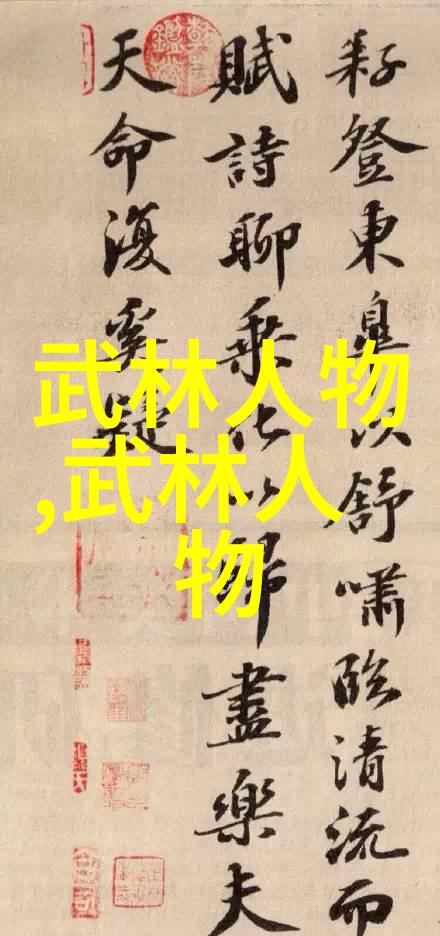 耔登東皐以舒嘯臨清流而
賦詩聊乘化以歸盡樂夫
天命復奚疑
武林人物
,武林人
物